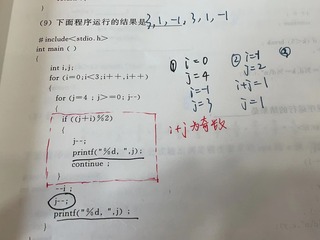 (9) 下面程序运行的结果是 3, 1, -1, 3, 1, -1
#include<stdio.h>
int main ( )
{
int i,j;
for (i=0;i<3;i++,i++)
{
for (j=4 ; j>=0; j--)
{
if ((j+i)%2)
{
j--;
printf("%d, ",j);
continue ;
}
--j ;
j--;
printf("%d, ",j) ;
① i=0
j=4
j=-1
j=3
② i=1
j=2
i+j=1
j=1
i+j 为奇数